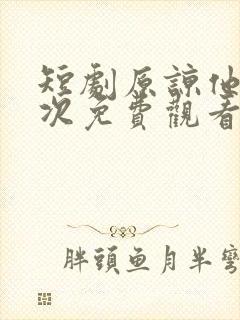 短劇原諒他
次免費觀看
胖頭鱼月半彎